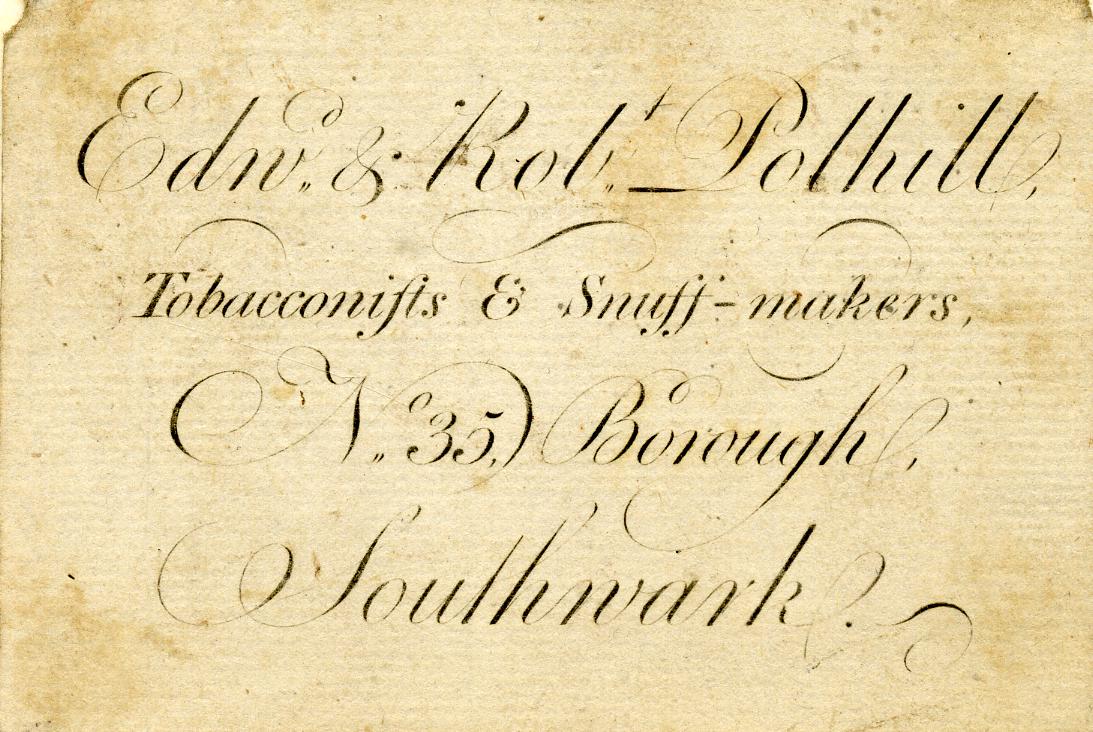 Edwd. & Robt. Polhill,
Tobacconiſts & Snuff-makers,
No. 35, Borough,
Southwark.